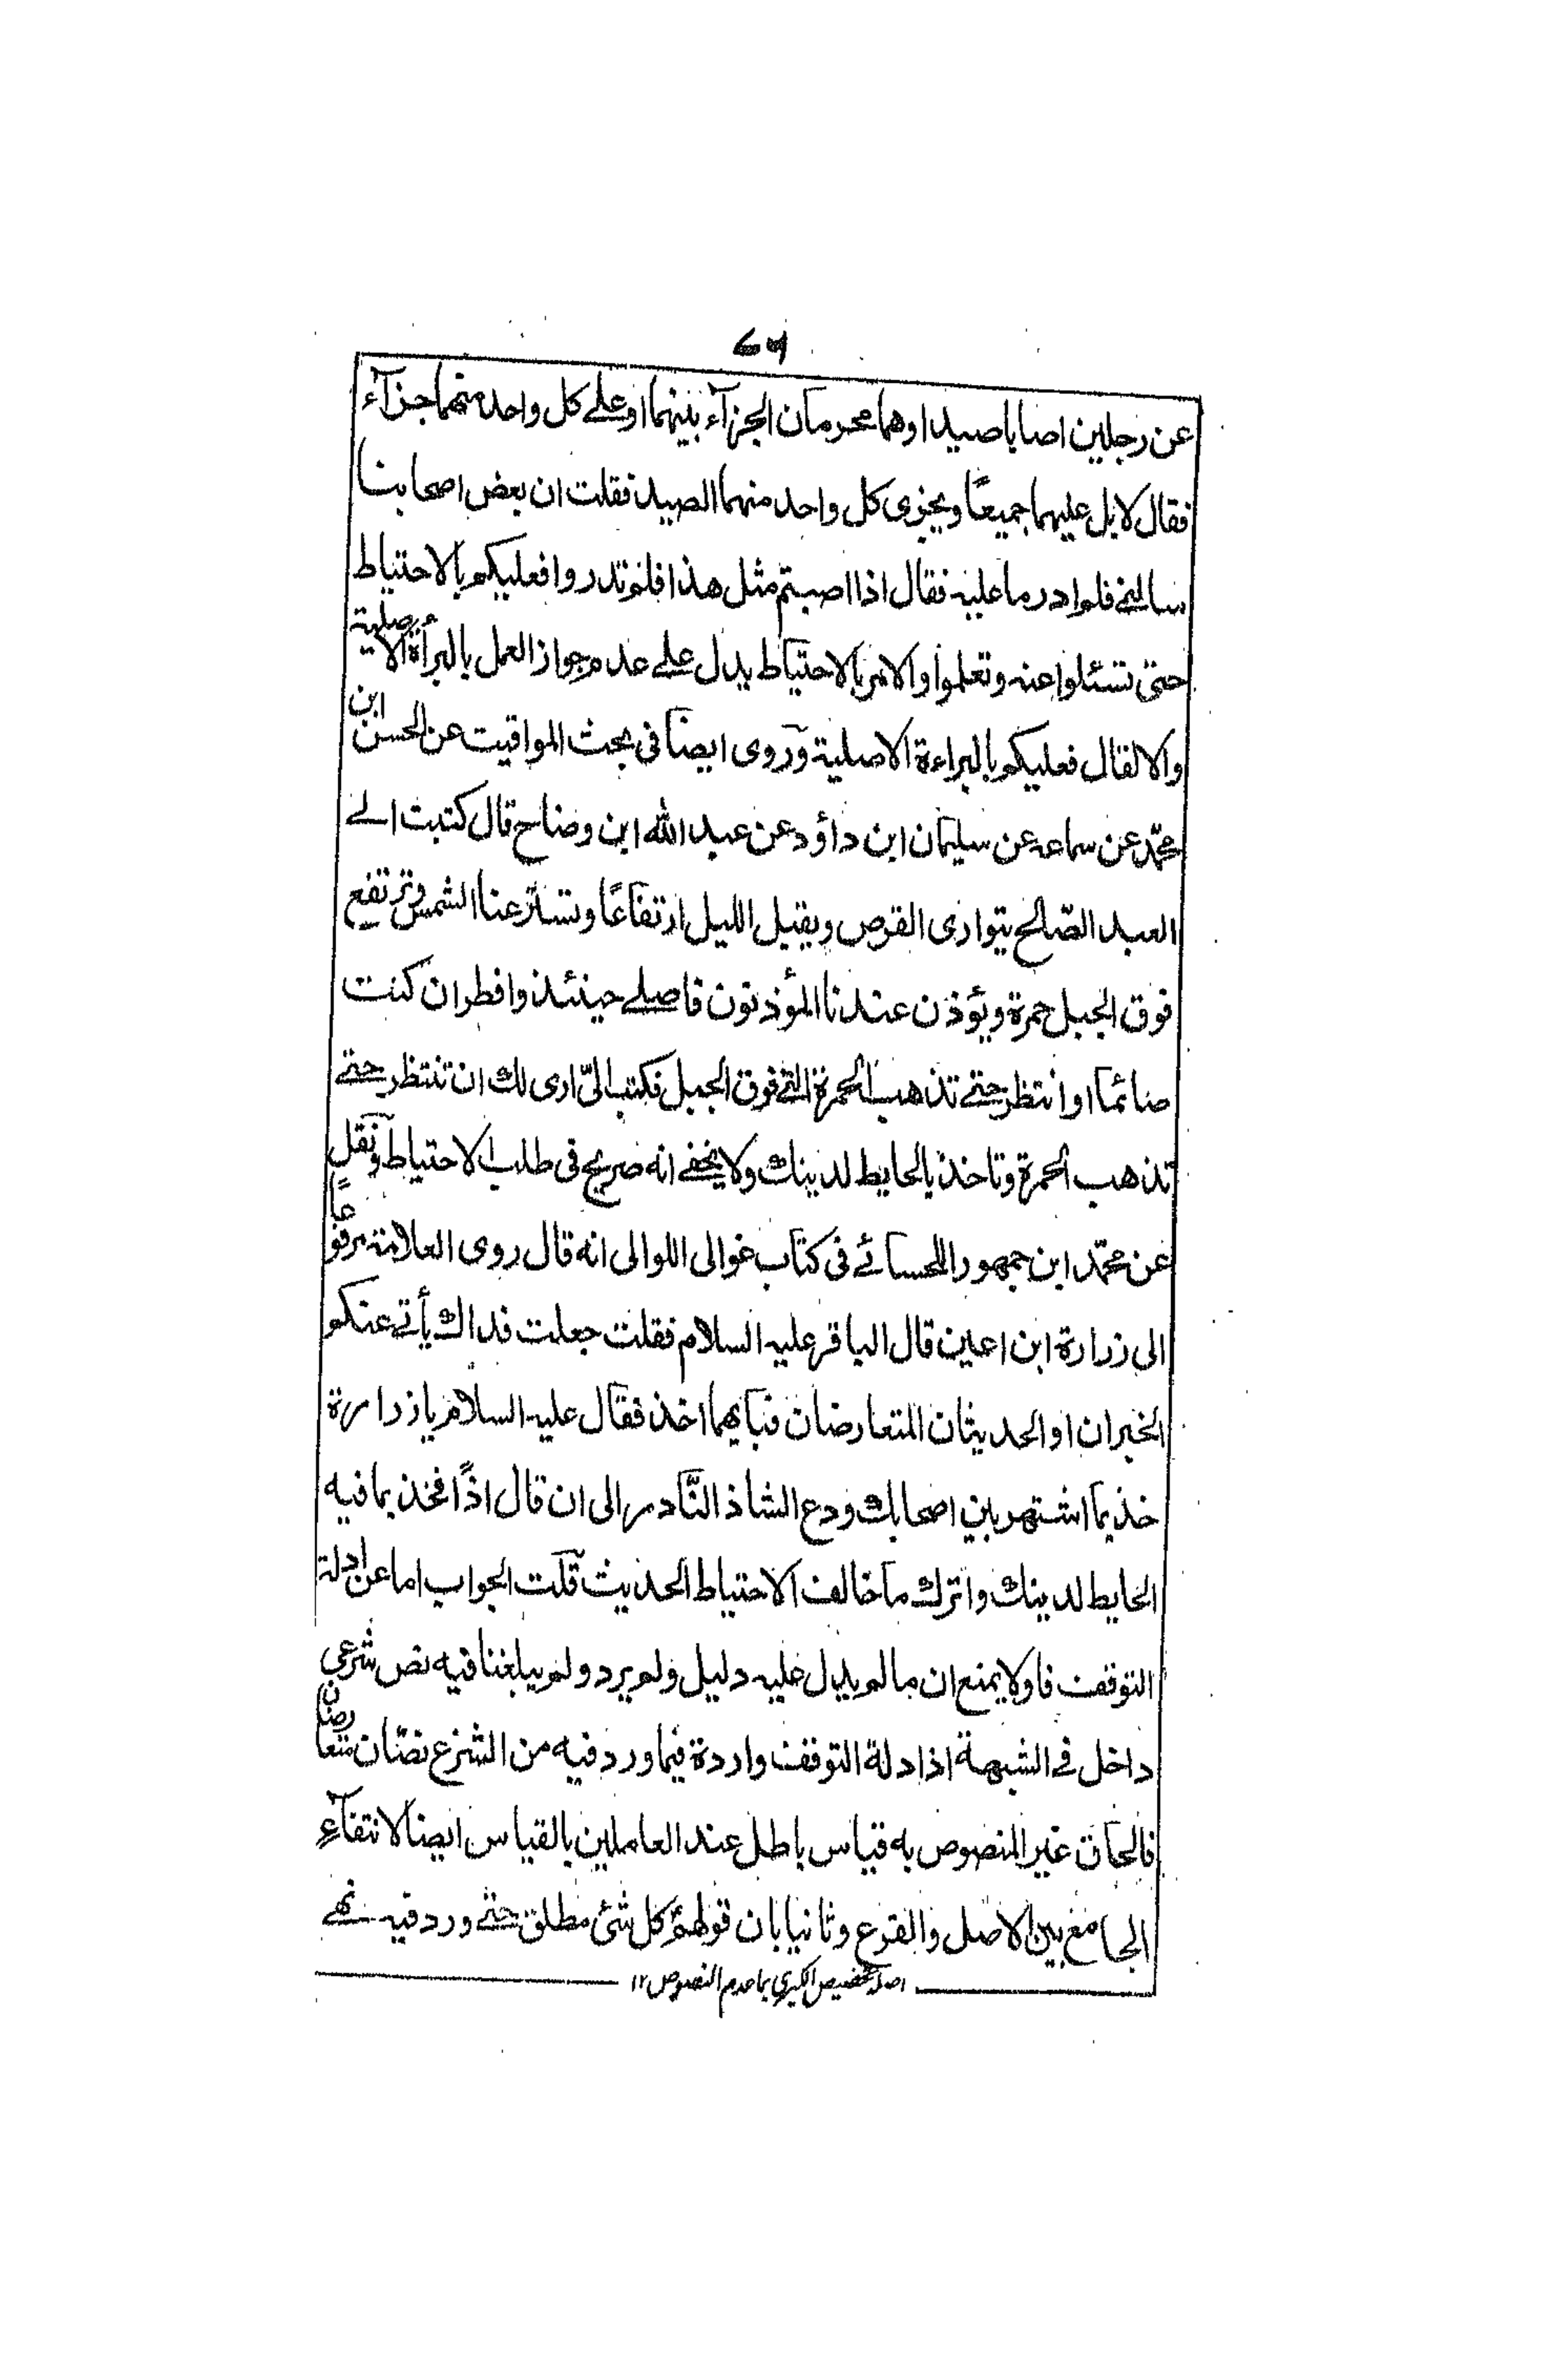 عن رجلين اصابا صيدا وهما محرمان الجزآء بينهما او على كل واحد منهما جزآء
فقال لا بل عليهما جميعًا ويجزى كل واحد منهما الصيد فقلت ان بعض اصحابنا
سالنى فلم ادر ما عليه فقال اذا اصبتم مثل هذا فلم تدروا فعليكم بالاحتياط
حتى تسئلوا عنه وتعلموا والامر بالاحتياط يدل على عدم جواز العمل بالبرأة الاصلية
والا لقال فعليكم بالبراءة الاصلية وروى ايضا فى بحث المواقيت عن الحسن ابن
محمّد عن سماعه عن سليمان ابن داؤد عن عبد الله ابن وضاح قال كتبت الى
العبد الصّالح يتوارى القرص ويقبل الليل ارتفاعًا وتستتر عنا الشمس وترتفع
فوق الجبل حمرة ويؤذن عندنا المؤذنون فاصلى حينئذ وافطر ان كنت
صائما او انتظر حتى تذهب الحمرة التى فوق الجبل فكتب الىّ ارى لك ان تنتظر حتى
تذهب الحمرة وتاخذ بالحايط لدينك ولا يخفى انه صريح فى طلب الاحتياط ونقل
عن محمّد ابن جمهور اللحسائى فى كتاب غوالى اللوالى انه قال روى العلامة مرفوعًا
الى زرارة ابن اعين قال الباقر عليه السلام فقلت جعلت فداك يأتى عنكم
الخبران او الحديثان المتعارضان فبايهما اخذ فقال عليه السلام يا زرارة
خذ بما اشتهر بين اصحابك ودع الشاذ النّادر الى ان قال اذًا فخذ بما فيه
الحايط لدينك واترك ما خالف الاحتياط الحديث قلت الجواب اما عن ادلة
التوقف فاولا يمنع ان ما لم يدل عليه دليل ولم يرد ولم يبلغنا فيه نص شرعى
داخل فى الشبهة اذ ادلة التوقف واردة فيما ورد فيه من الشرع نصّان متعارضان
فالحاق غير المنصوص به قياس باطل عند العاملين بالقياس ايضا لانتفآء
الجامع بين الاصل والفرع وثانيا بان قولهم كل شئ مطلق حتى ورد فيه نهى